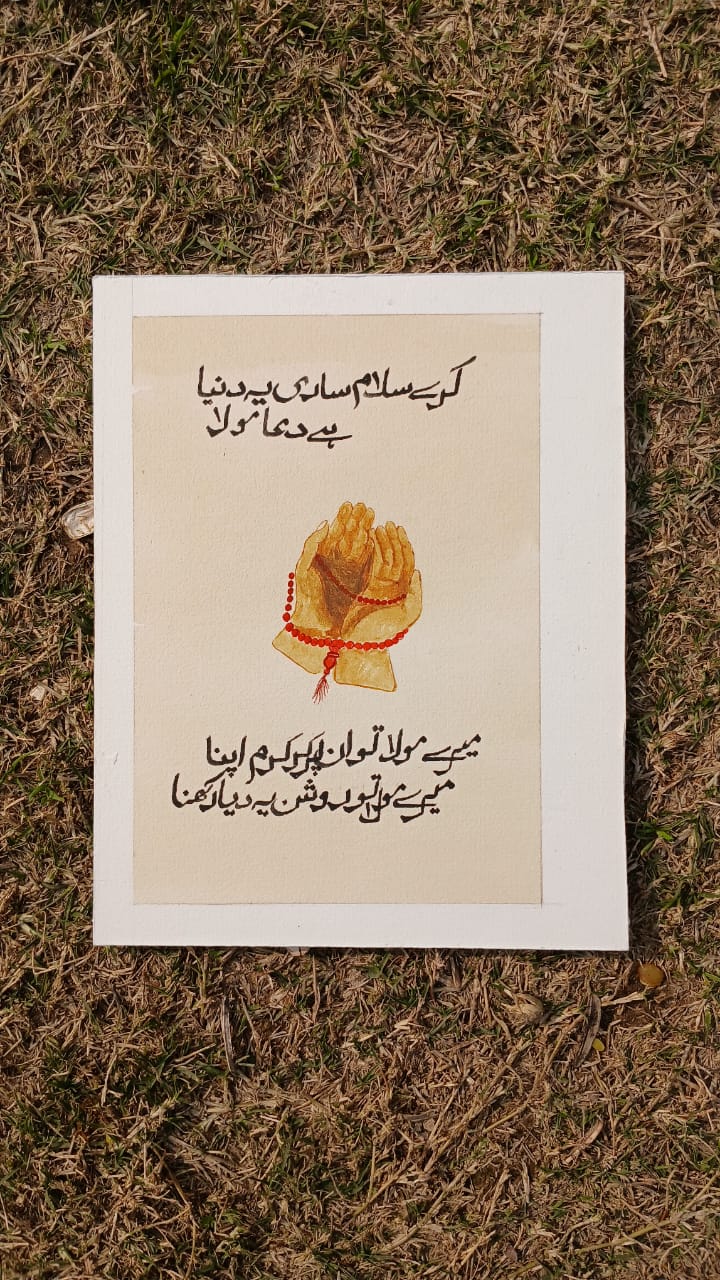 کرے سلام ساری یہ دنیا
ہے دعا مولا
میرے مولا تو ان پر کر کرم اپنا
میرے مولا تو روشن یہ دیا رکھنا